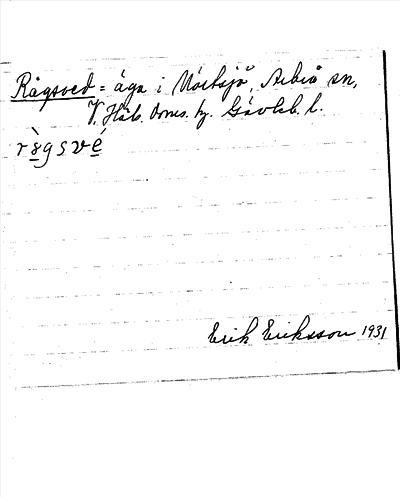 Rågsved = äga i Västsjö, Arbrå sn,
V. Häls. Doms. hg. Gävleb. l.
rǜgsvé
Erik Eriksson 1931